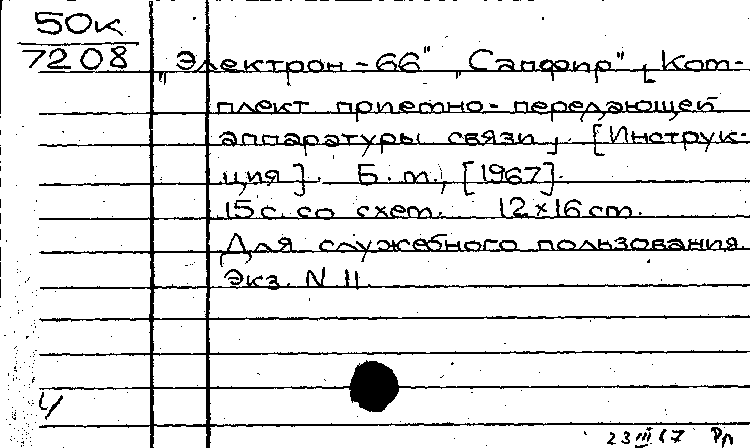 50к
7208
„Электрон-66" „Сапфир", [Ком-
плект приемно-передающей
аппаратуры связи]. [Инструк-
ция]. Б. м., [1967].
15 с. со схем. 12×16 cm.
Для служебного пользования
Экз. N 11.
Ч
23 III 67